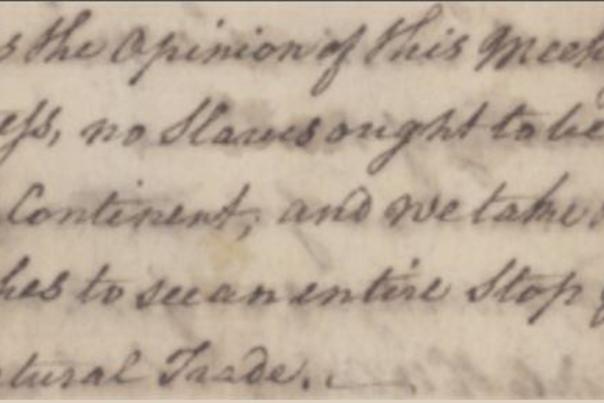 s the Opinion of this Meet
ess, no Slaves ought to be
Continent; and we take
hes to see an entire Stop
atural Trade.